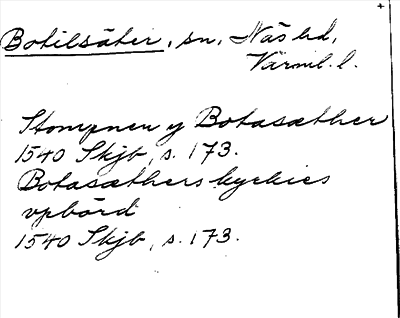 Botilsäter, sn, Näs hd,
Värml. l.
Stompnen y Botasæther
1540 Skjb, s. 173.
Botasæthers kyrkies
vpbörd
1540 Skjb, s. 173.